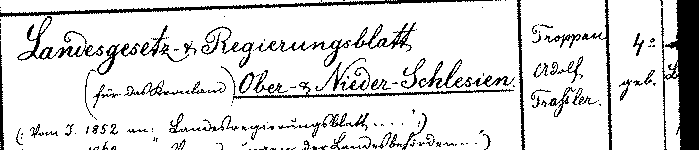 Landesgesetz- & Regierungsblatt
(für das Kronland) Ober- & Nieder-Schlesien.
(: Vom J. 1852 an: "Landesregierungsblatt....":)
der Landesbehörden...")
Troppau
Adolf
Trassler.
4°
geb.